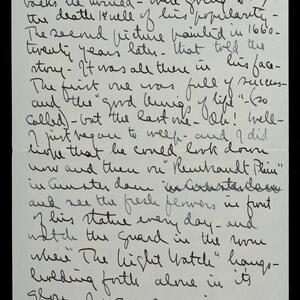 the death knell of his popularity-
The second picture painted in 1660-
twenty years later- that told the
story- It was all there in his face-
The first one was full of success-
and the "good things of life"- (so
called)- but the last one- Oh! Well-
I just began to weep- and I did
hope that he could look down
now and then on "Rembrandt Plein"
in Amsterdam in Amsterdam
and see the fresh flowers in front
of his statue every day- and
watch the guard in the room
where "The Night Watch" hangs-
holding forth alone in its